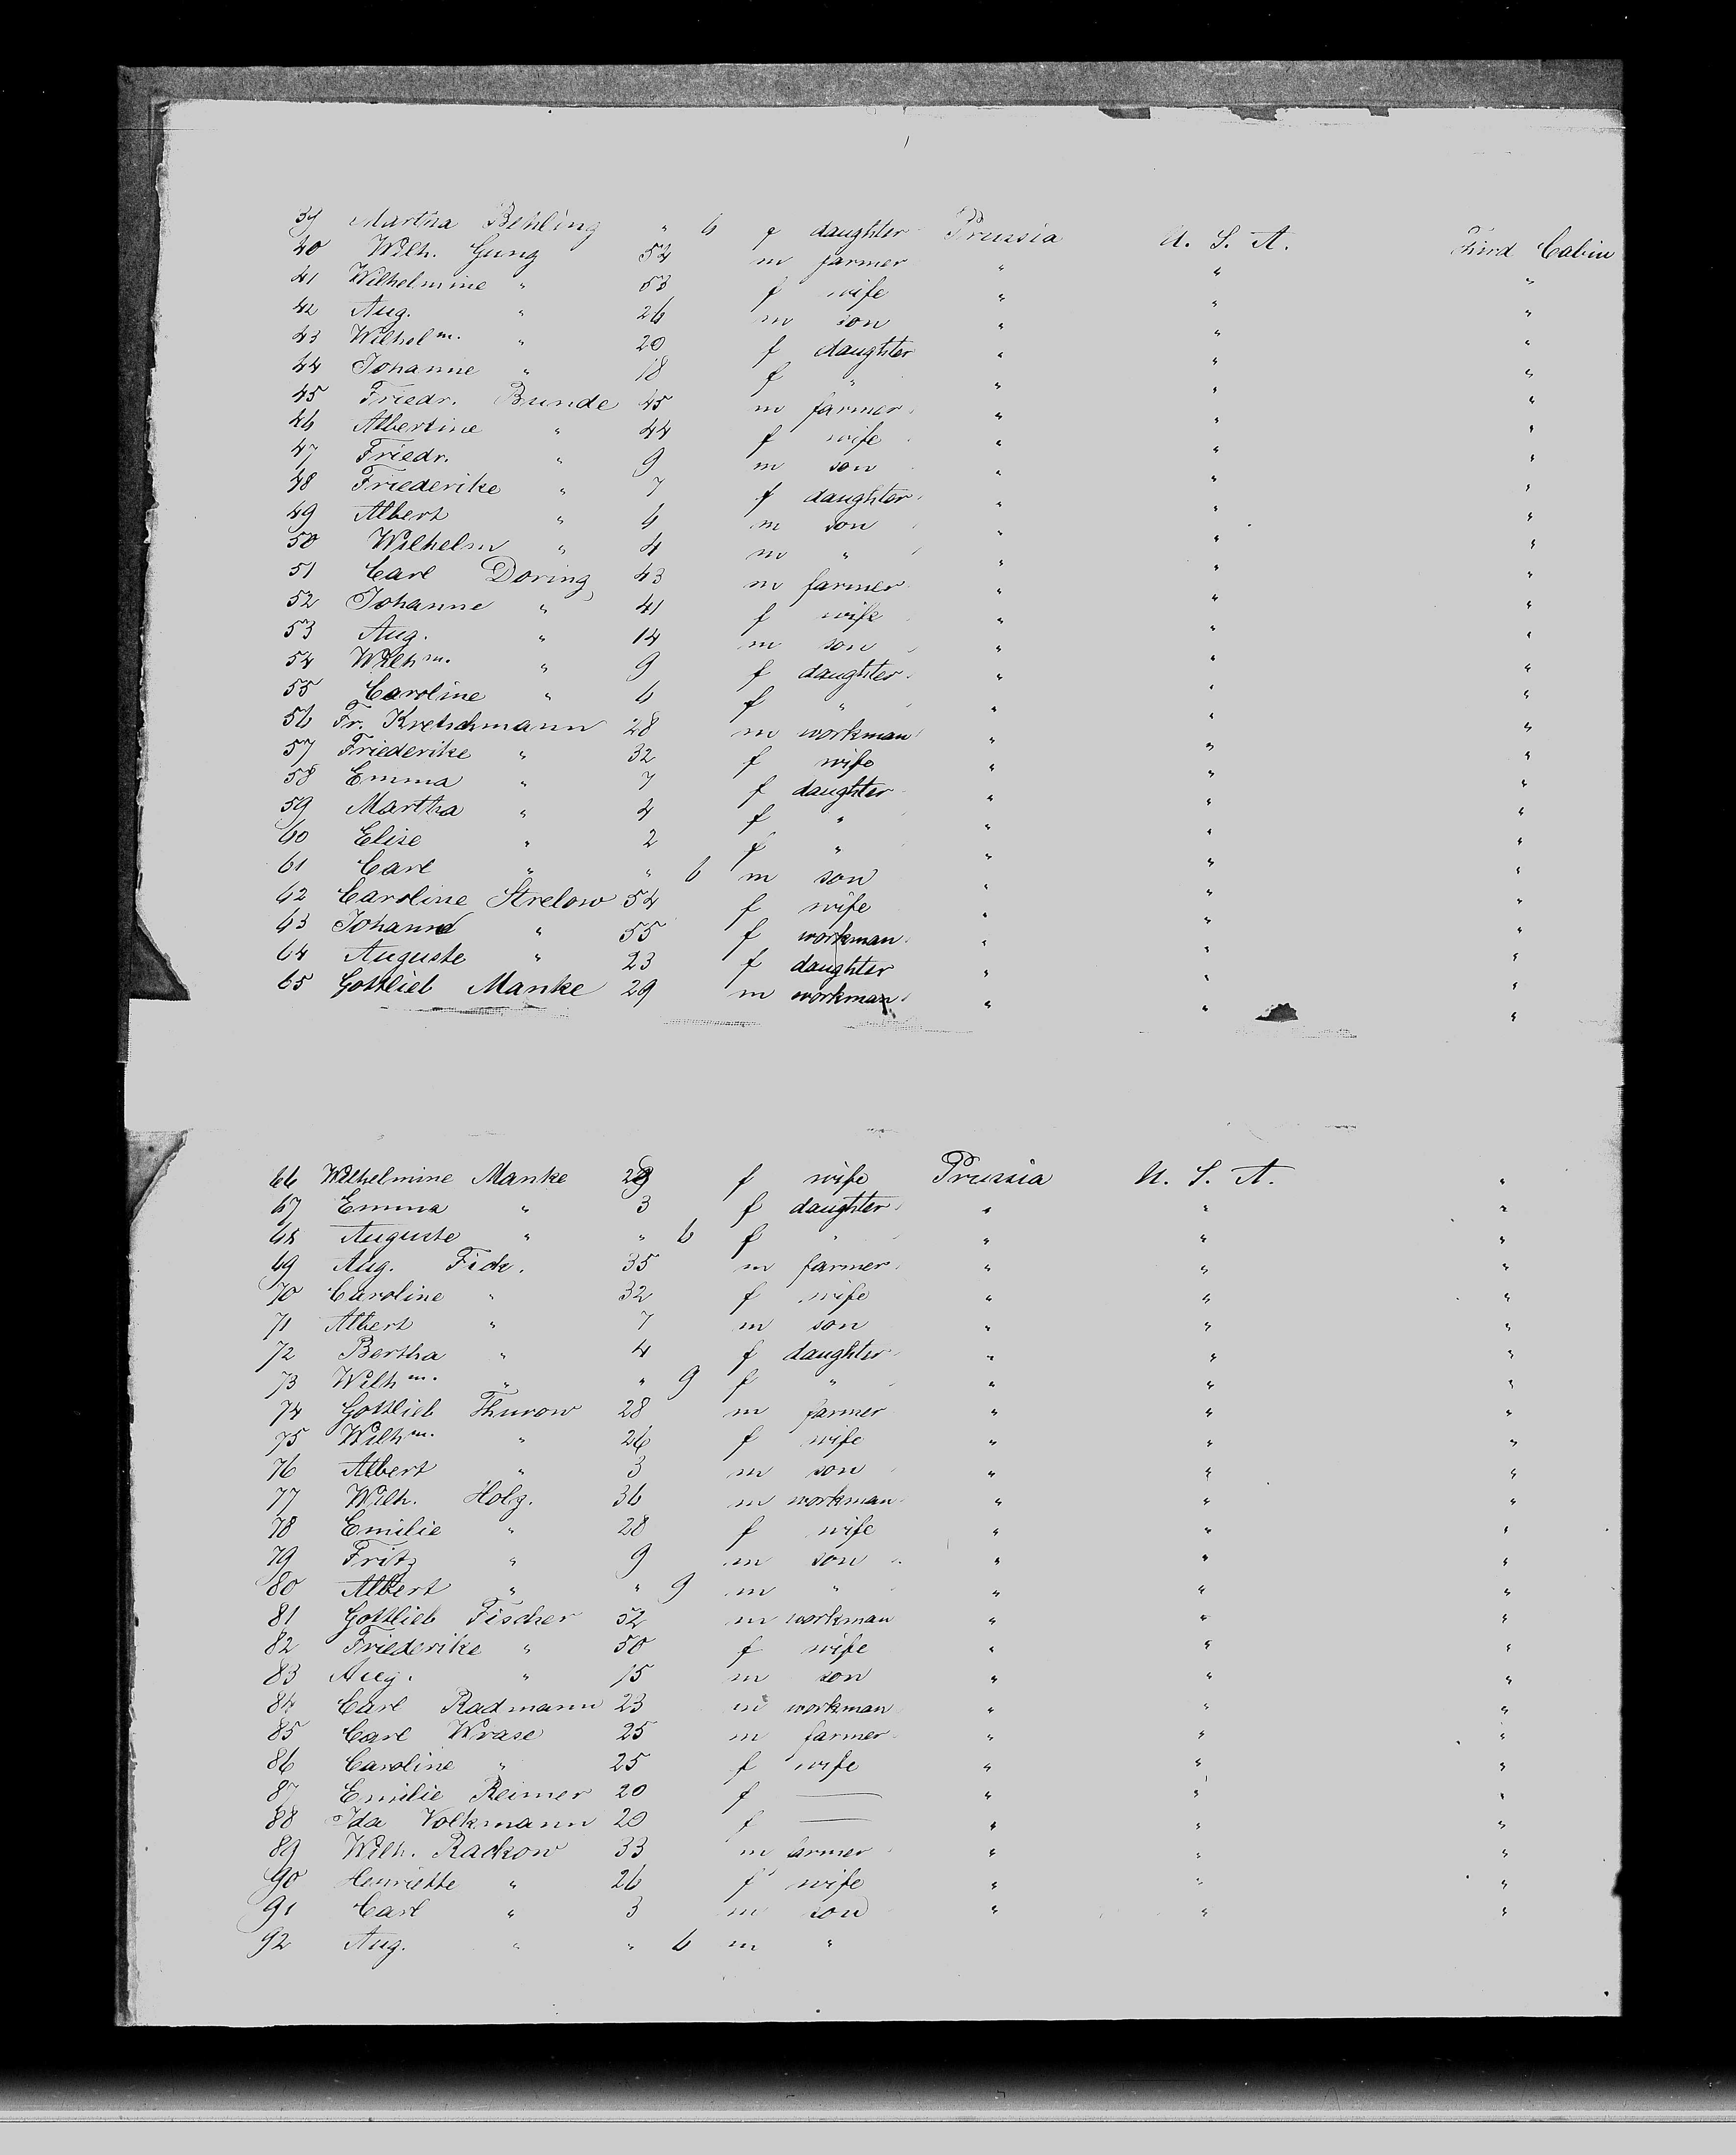 39 Martha Behling " 6 f daughter Prussia U. S. A. Third Cabin
40 Wilh. Gung 54 m farmer " " "
41 Wilhelmine " 53 f wife " " "
42 Aug. " 26 m son " " "
43 Wilhelm. " 20 f daughter " " "
44 Johanne " 18 f " " " "
45 Friedr. Bunde 45 m farmer " " "
46 Albertine " 44 f wife " " "
47 Friedr. " 9 m son " " "
48 Friederike " 7 f daughter " " "
49 Albert " 6 m son " " "
50 Wilhelm " 4 m " " " "
51 Carl Doring 43 m farmer " " "
52 Johanne " 41 f wife " " "
53 Aug. " 14 m son " " "
54 Wilhm. " 9 f daughter " " "
55 Caroline " 6 f " " " "
56 Fr. Kretschmann 28 m workman " " "
57 Friederike " 32 f wife " " "
58 Emma " 7 f daughter " " "
59 Martha " 4 f " " " "
60 Elise " 2 f " " " "
61 Carl " " 6 m son " " "
62 Caroline Strelow 54 f wife " " "
63 Johann " 55 f workman " " "
64 Auguste " 23 f daughter " " "
65 Gottlieb Manke 29 m workman " " "
66 Wilhelmine Manke 29 f wife Prussia U. S. A. "
67 Emma " 3 f daughter " " "
68 Auguste " " 6 f " " " "
69 Aug. Fick. 35 m farmer " " "
70 Caroline " 32 f wife " " "
71 Albert " 7 m son " " "
72 Bertha " 4 f daughter " " "
73 Wilhm. " " 9 f " " " "
74 Gottlieb Thurow 28 m farmer " " "
75 Wilhm. " 26 f wife " " "
76 Albert " 3 m son " " "
77 Wilh. Holz. 36 m workman " " "
78 Emilie " 28 f wife " " "
79 Fritz " 9 m son " " "
80 Albert " " 9 m " " " "
81 Gottlieb Fischer 52 m workman " " "
82 Friederike " 50 f wife " " "
83 Aug. " 15 m son " " "
84 Carl Radmann 23 m workman " " "
85 Carl Wrase 25 m farmer " " "
86 Caroline " 25 f wife " " "
87 Emilie Reimer 20 f — " " "
88 Ida Volkmann 20 f — " " "
89 Wilh. Rackow 33 m farmer " " "
90 Henriette " 26 f wife " " "
91 Carl " 3 m son " " "
92 Aug. " " 6 m "